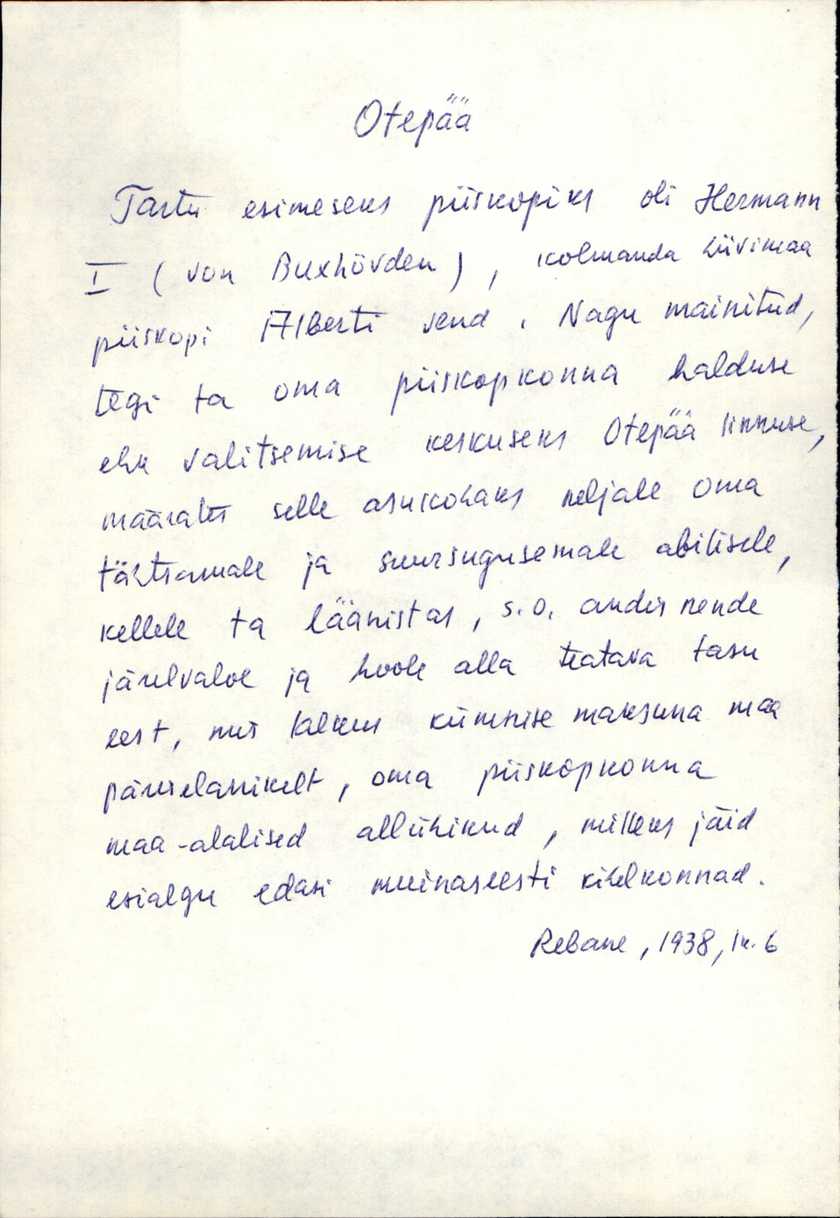 Otepää
Tartu esimeseks piiskopiks oli Hermann
I (von Buxhövden), kolmanda Liivimaa
piiskopi Alberti vend. Nagu mainitud,
tegi ta oma piiskopkonna halduse
ehk valitsemise keskuseks Otepää linnuse,
määrates selle asukohaks neljale oma
tähtsamale ja suursugusemale abilisele,
kellele ta läänistas, s.o. andis nende
järelvalve ja hoole alla teatava tasu
eest, mis laekus kümnise maksuna maa
päriselanikelt, oma piiskopkonna
maa-alalised allühikud, milleks jäid
esialgu edasi muinaseesti kihelkonnad.
Rebane, 1938, lk. 6